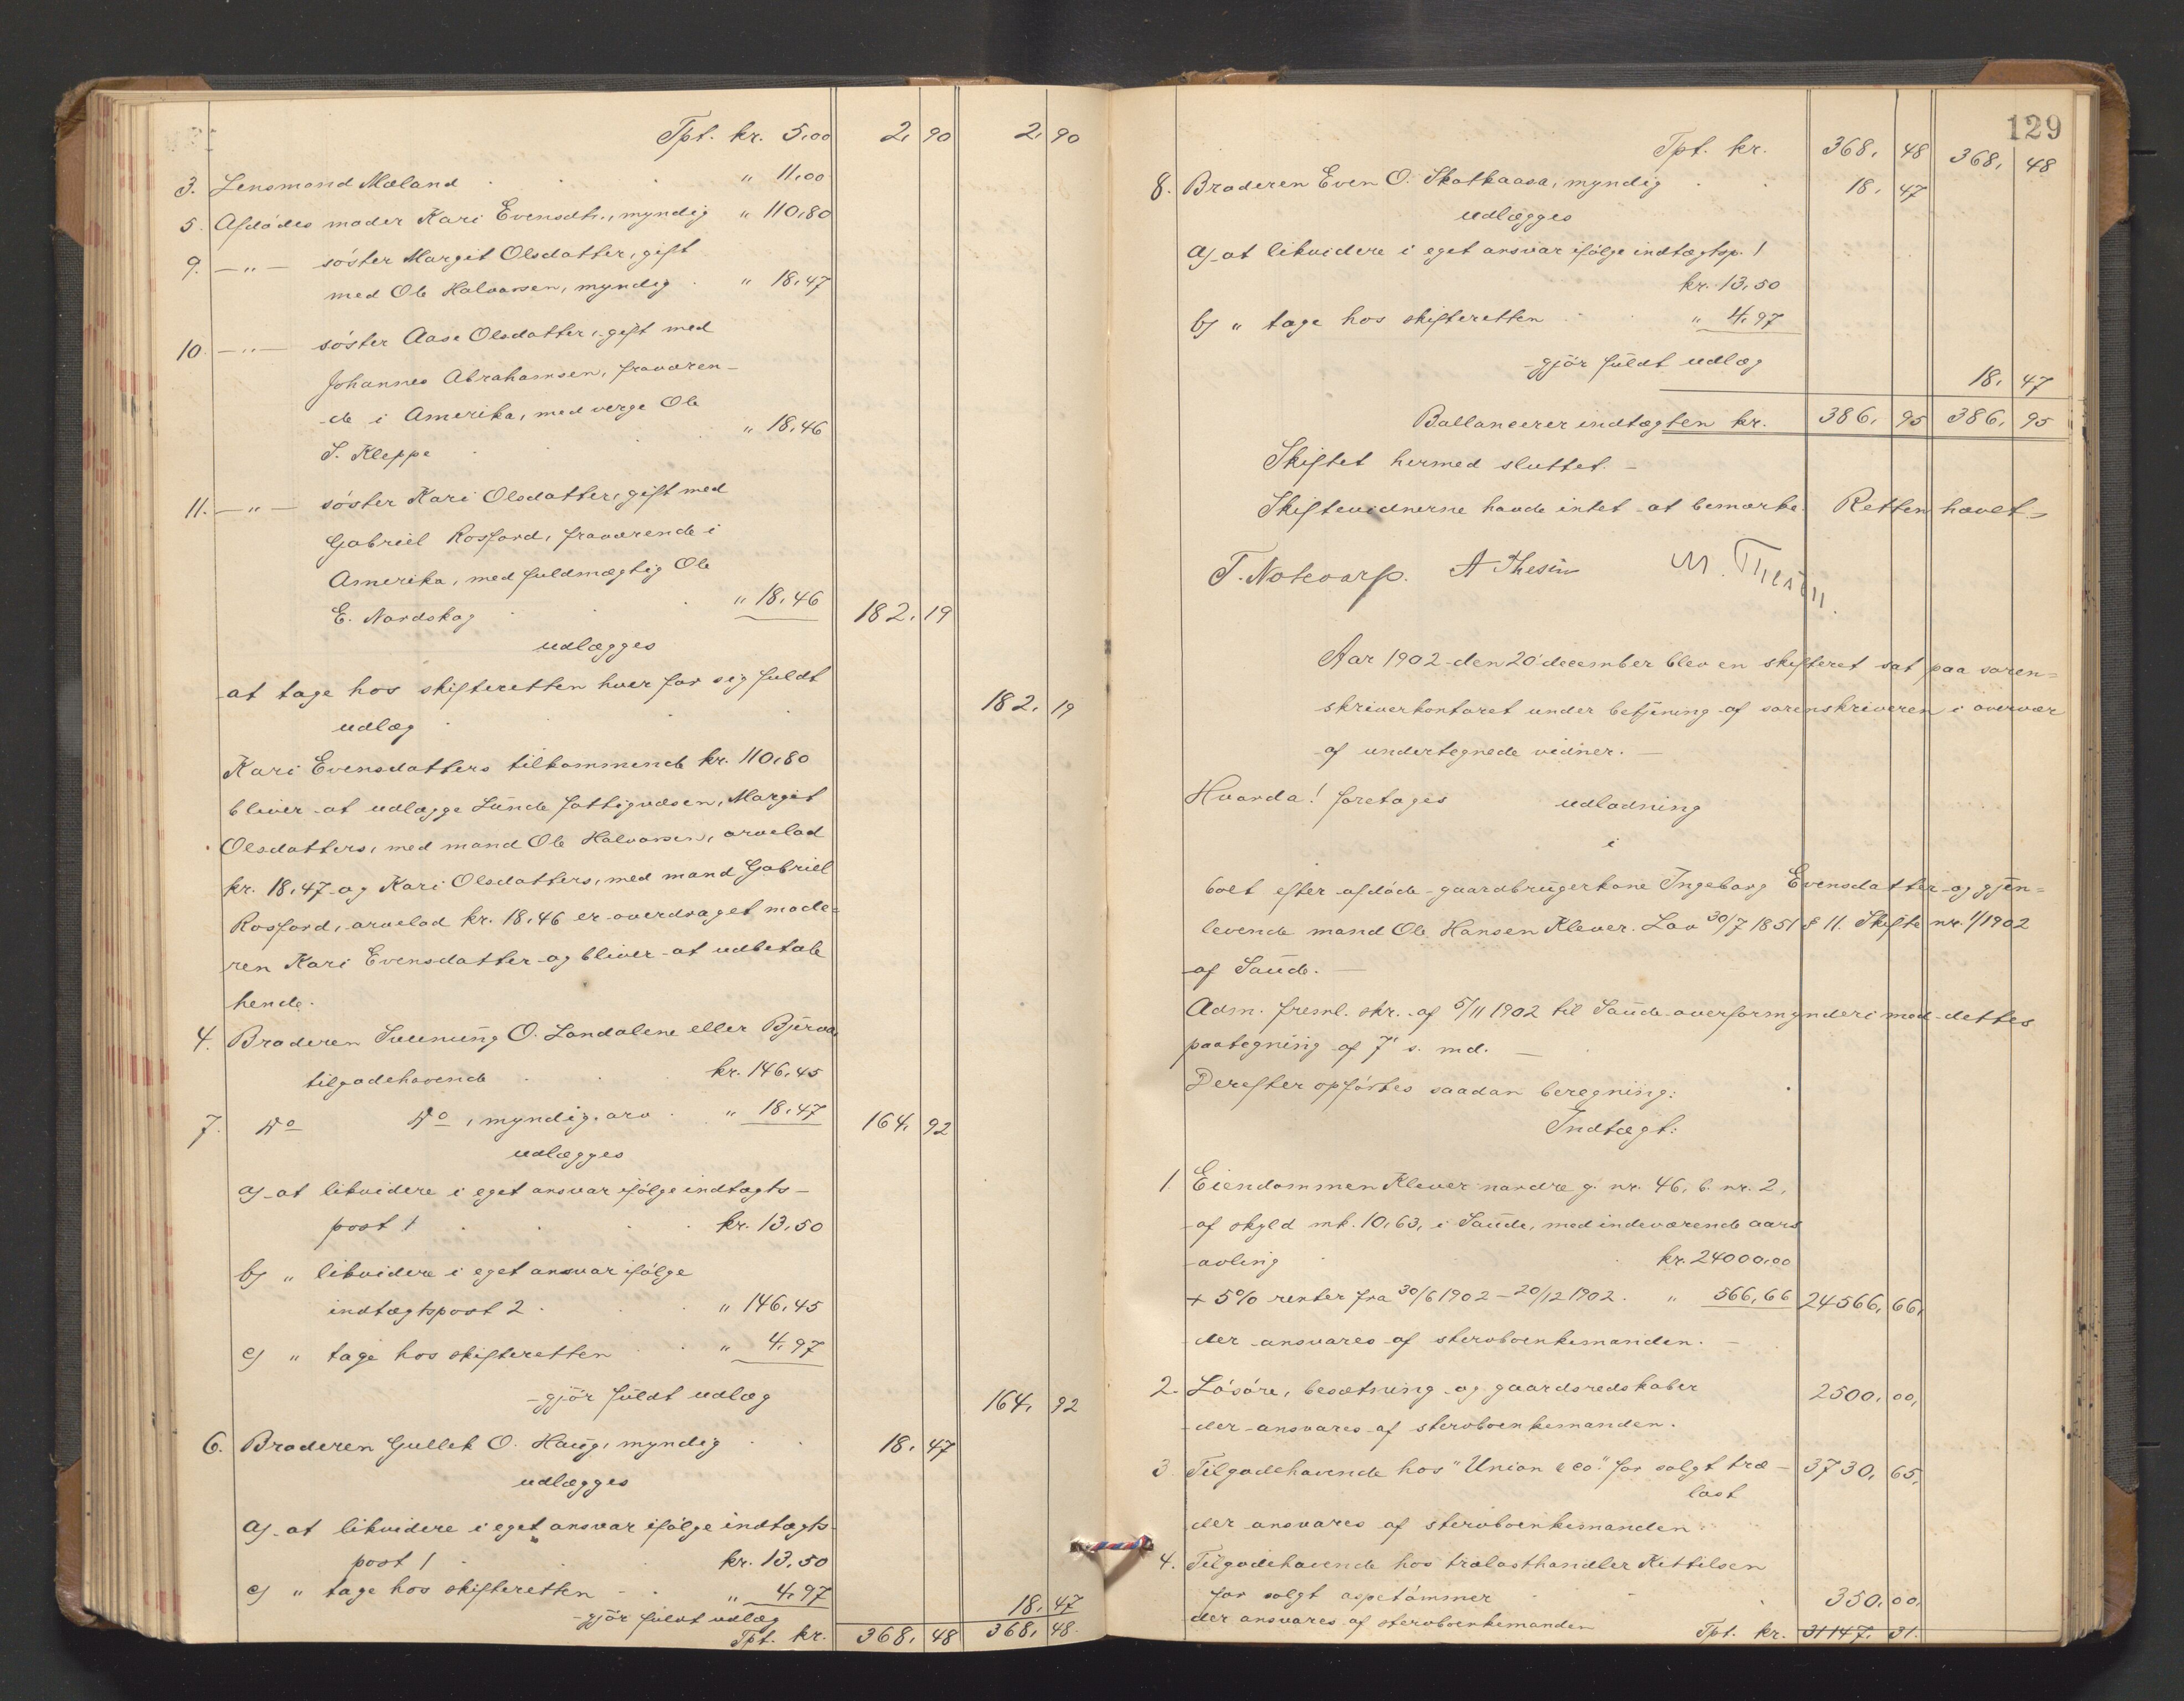 Tpt. kr. 5,00 2, 90 2, 90
3. Lensmand Mæland " 11,00
5. Afdødes moder Kari Evensdtr., myndig " 110,80
9. —"— søster Margit Olsdatter, gift
med Ole Halvorsen, myndig " 18,47
10. —"— søster Aase Olsdatter, gift med
Johannes Abrahamsen, fraværen-
de i Amerika, med verge Ole
S. Kleppe " 18,46
11. —"— søster Kari Olsdatter, gift med
Gabriel Rosford, fraværende i
Amerika, med fuldmægtig Ole
E. Nordskog " 18,46 182, 19
udlægges
at tage hos skifteretten hver for sig fuldt
udlæg 182, 19
Kari Evensdatters tilkommende kr. 110,80
bliver at udlægge Lunde fattigvæsen, Margit
Olsdatters, med mand Ole Halvorsen, arvelod
kr. 18,47 og Kari Olsdatters, med mand Gabriel
Rosford, arvelod kr. 18,46 er overdraget mode=
ren Kari Evensdatter og bliver at udbetale
hende.
4. Broderen Sveinung O. Landalene eller Bjerva
tilgodehavende kr. 146,45
7. Do Do, myndig, arv " 18,47 164, 92
udlægges
a) at likvidere i eget ansvar ifølge indtægts-
post 1 kr. 13,50
b) " likvidere i eget ansvar ifølge
indtægtspost 2 " 146,45
c) " tage hos skifteretten " 4,97
gjør fuldt udlæg 164, 92
6. Broderen Gullek O. Haug, myndig 18, 47
udlægges
a) at likvidere i eget ansvar ifølge indtægts-
post 1 kr. 13,50
c) " tage hos skifteretten " 4,97
gjør fuldt udlæg 18, 47
Tpt. kr. 368, 48 368, 48.
129
Tpt. kr. 368, 48 368, 48
8. Broderen Even O. Skotkaasa, myndig 18, 47
udlægges
a) at likvidere i eget ansvar ifølge indtægtsp. 1
kr. 13,50
b) " tage hos skifteretten " 4,97
gjør fuldt udlæg 18, 47
Ballancerer indtægten kr. 386, 95 386, 95
Skiftet hermed sluttet. —
Skiftevidnerne havde intet at bemærke. Retten hævet
T. Notvarp. A Thesen M. Thesen.
Aar 1902 den 20 december blev en skifteret sat paa soren=
skriverkontoret under betjening af sorenskriveren i overvær
af undertegnede vidner. —
Hvorda! foretages udlodning
i
boet efter afdøde gaardbrugerkone Ingeborg Evensdatter og gjen=
levende mand Ole Hansen Klever. Lov 30/7 1851 § 11. Skifte nr. 1/1902
af Saude. —
Adm. freml. skr. af 5/11 1902 til Saude overformynderi med dettes
paategning af 7' s. md. —
Derefter opførtes saadan beregning:
Indtægt:
1. Eiendommen Klever nordre g. nr. 46, b. nr. 2,
af skyld mk. 10,63, i Saude, med indeværende aars
avling kr. 24000,00
+ 5% renter fra 30/6 1902 – 20/12 1902. " 566,66 24566, 66,
der ansvares af stervboenkemanden. —
2. Løsøre, besætning og gaardsredskaber 2500, 00,
der ansvares af stervboenkemanden.
3. Tilgodehavende hos "Union & co." for solgt træ- 3730, 65,
last
der ansvares af stervboenkemanden
4. Tilgodehavende hos trælasthandler Kittilsen
for solgt aspetømmer 350, 00,
der ansvares af stervboenkemanden Tpt. kr. 31147, 31.